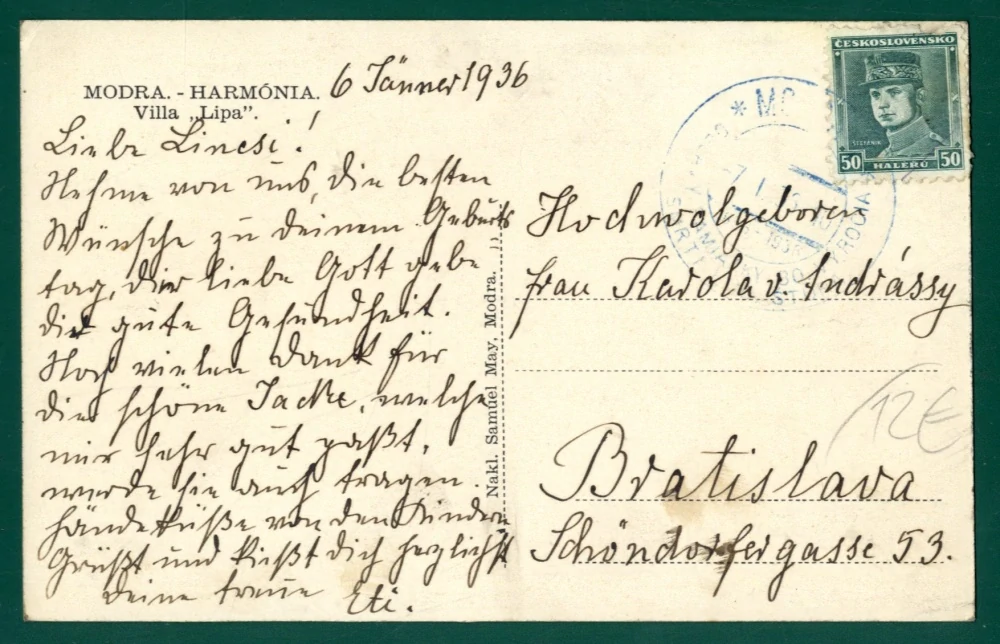 MODRA. - HARMÓNIA.
Villa „Lipa”.
6 Jänner 1936
Liebe Lincsi!
Nehme von uns, die besten
Wünsche zu deinem Geburts
tag, der liebe Gott gebe
dir gute Gesundheit.
Noch vielen Dank für
die schöne Jacke, welche
mir sehr gut paßt,
werde sie auch tragen.
Händeküße von den Kindern
Grüßt und küßt Dich herzlichst
Deine treue Eti.
Nakl. Samuel May, Modra.
ČESKOSLOVENSKO
ŠTEFÁNIK
50 HALÉŘŮ 50
Hochwolgeboren
Frau Karola v. Andrássy
Bratislava
Schöndorfergasse 53.
12€